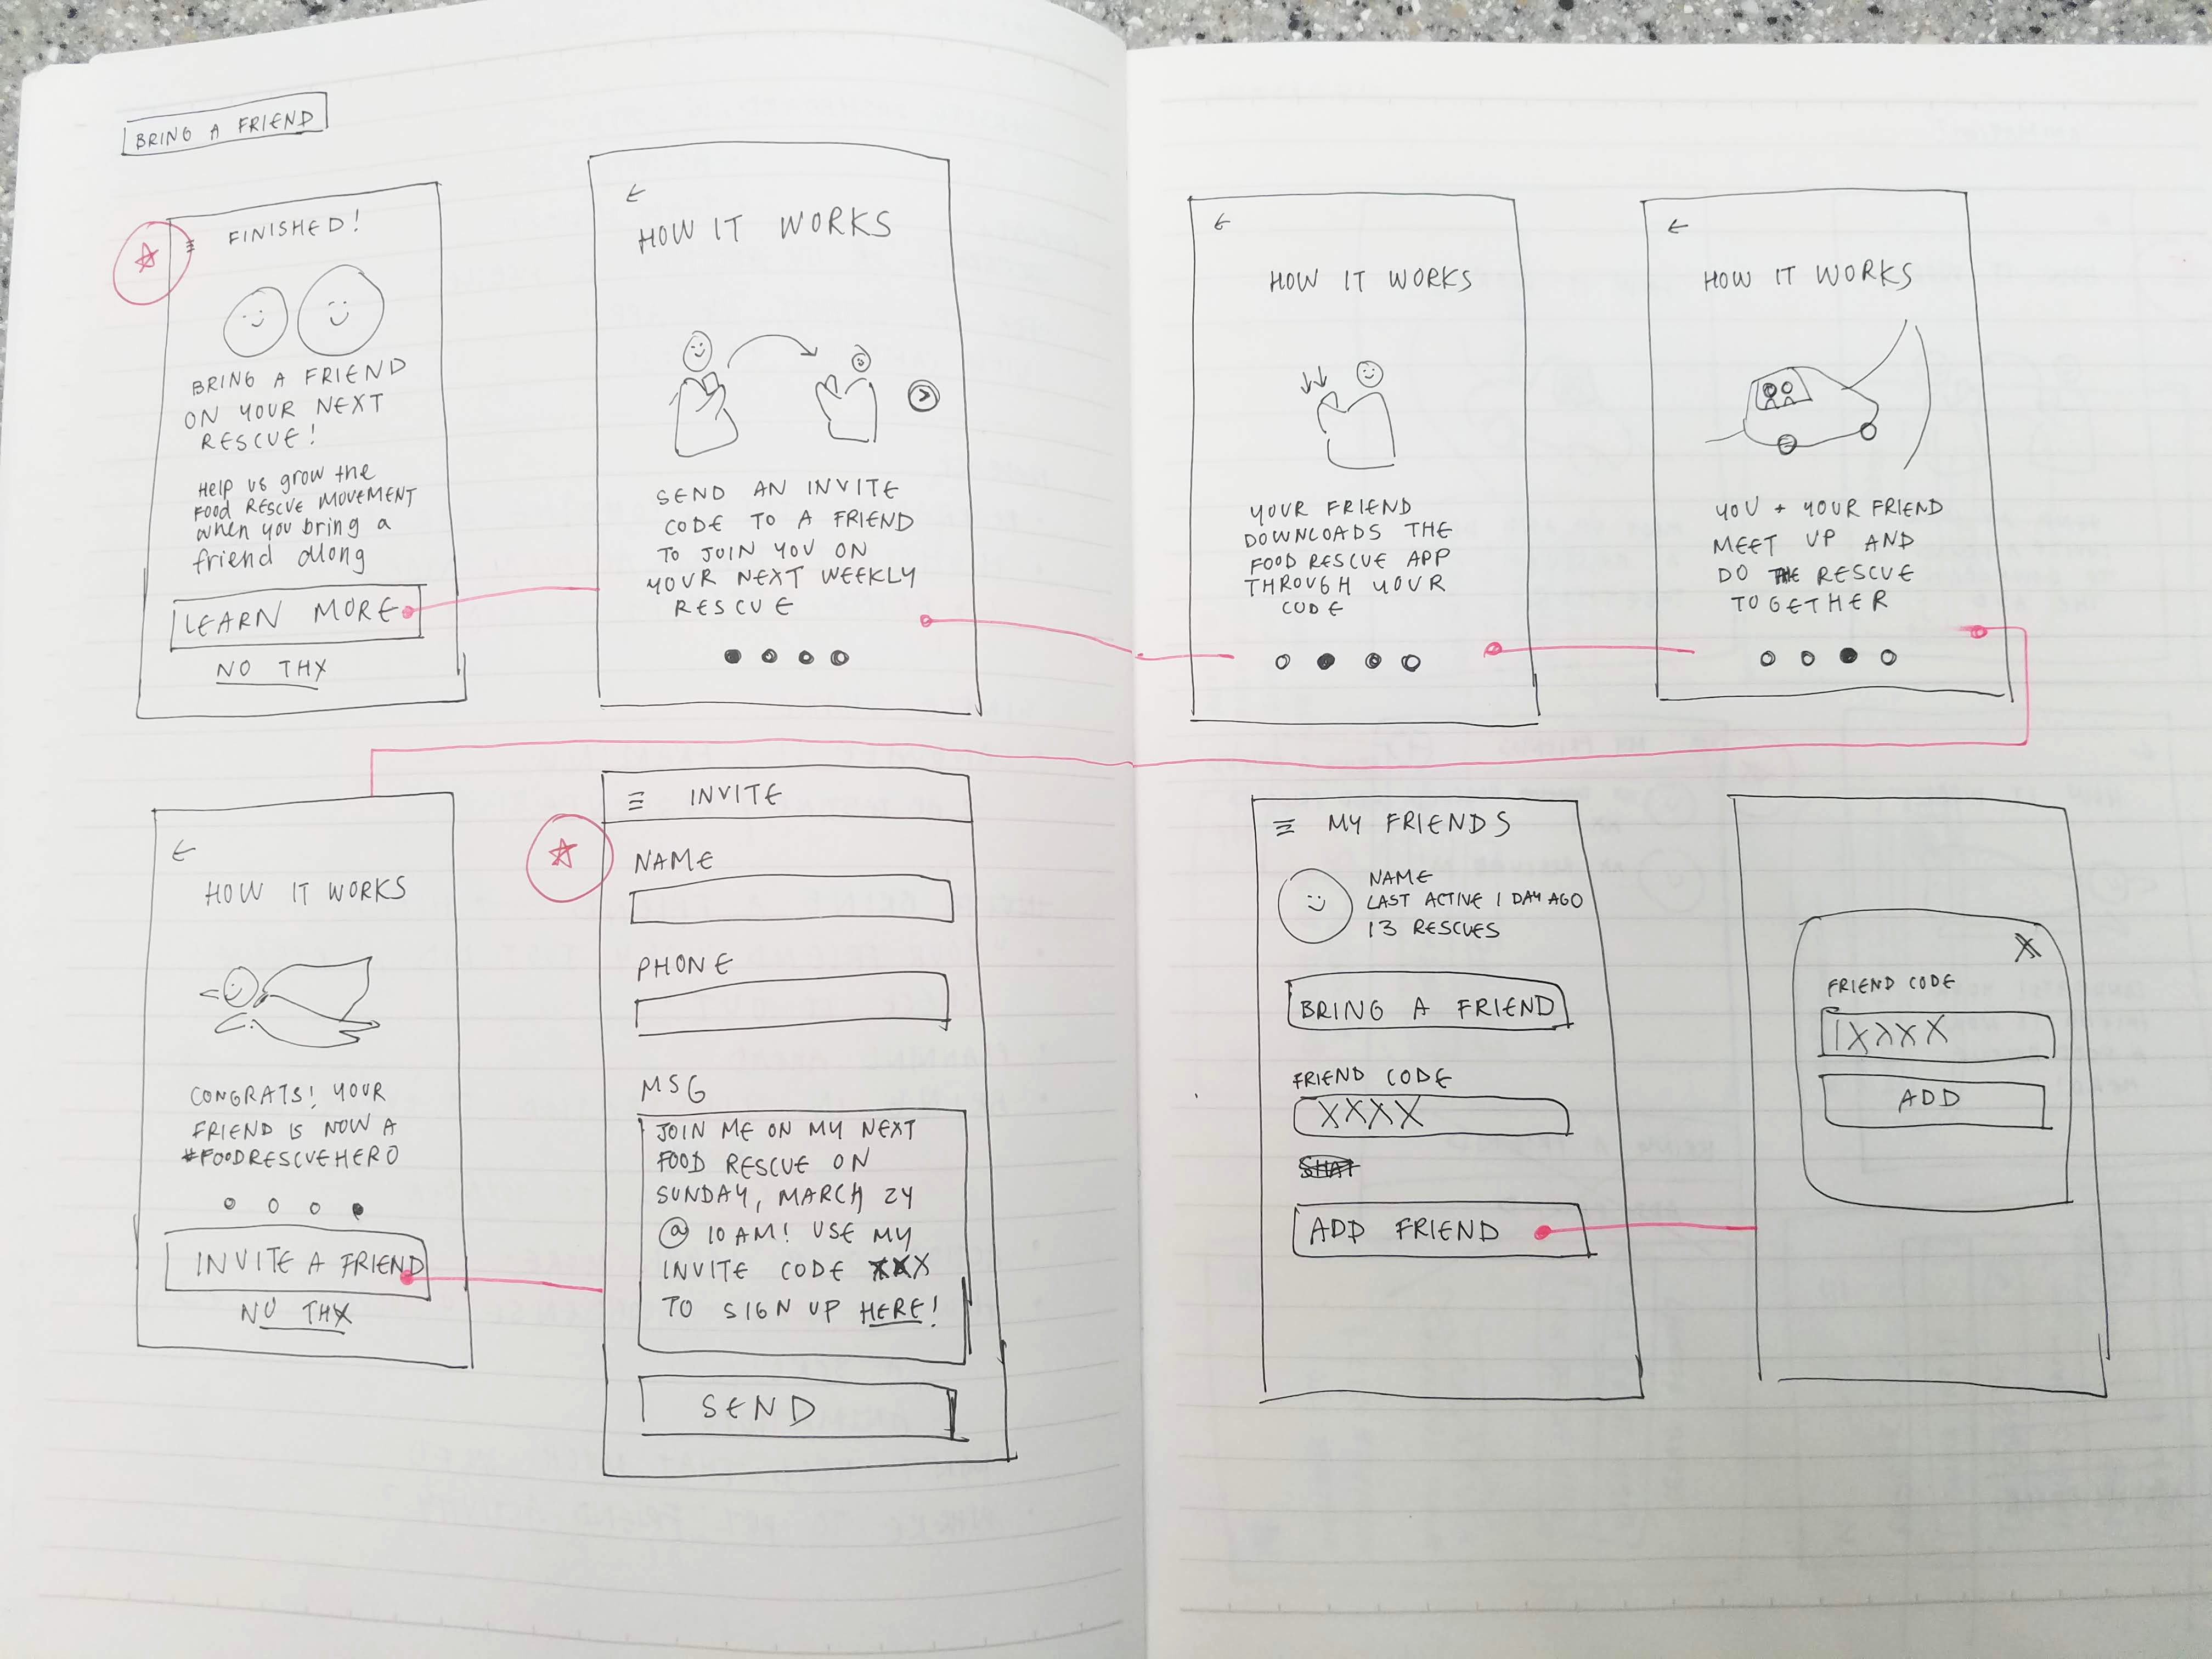 BRING A FRIEND
FINISHED!
BRING A FRIEND
ON YOUR NEXT
RESCUE!
Help us grow the
FOOD RESCUE MOVEMENT
when you bring a
friend along
LEARN MORE
NO THX
HOW IT WORKS
SEND AN INVITE
CODE TO A FRIEND
TO JOIN YOU ON
YOUR NEXT WEEKLY
RESCUE
HOW IT WORKS
YOUR FRIEND
DOWNLOADS THE
FOOD RESCUE APP
THROUGH YOUR
CODE
HOW IT WORKS
YOU + YOUR FRIEND
MEET UP AND
DO THE RESCUE
TOGETHER
HOW IT WORKS
CONGRATS! YOUR
FRIEND IS NOW A
#FOODRESCUEHERO
INVITE A FRIEND
NO THX
INVITE
NAME
PHONE
MSG
JOIN ME ON MY NEXT
FOOD RESCUE ON
SUNDAY, MARCH 24
@ 10AM! USE MY
INVITE CODE XXX
TO SIGN UP HERE!
SEND
MY FRIENDS
NAME
LAST ACTIVE 1 DAY AGO
13 RESCUES
BRING A FRIEND
FRIEND CODE
XXXX
ADD FRIEND
X
FRIEND CODE
|XXXX
ADD